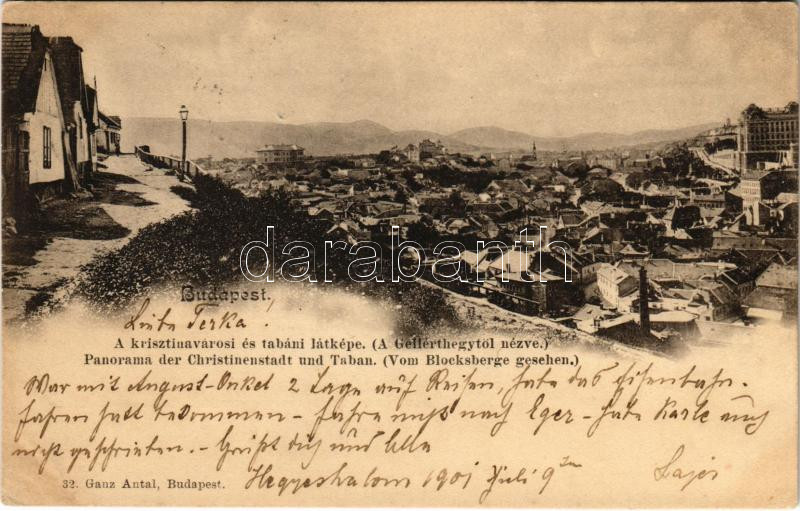 Budapest.
Liebe Terka!
A krisztinavárosi és tabáni látképe. (A Gellérthegytől nézve.)
Panorama der Christinenstadt und Taban. (Vom Blocksberge gesehen.)
War mit August-Onkel 2 Tage auf Reisen, habe das Eisenbahn-
fahren satt bekommen - fahre nicht nach Eger - habe Karle auch
nicht geschrieben. - Grüßt dich und alle
Hegyeshalom 1901 Juli 9 Lajos
32. Ganz Antal, Budapest.
darabanth.com